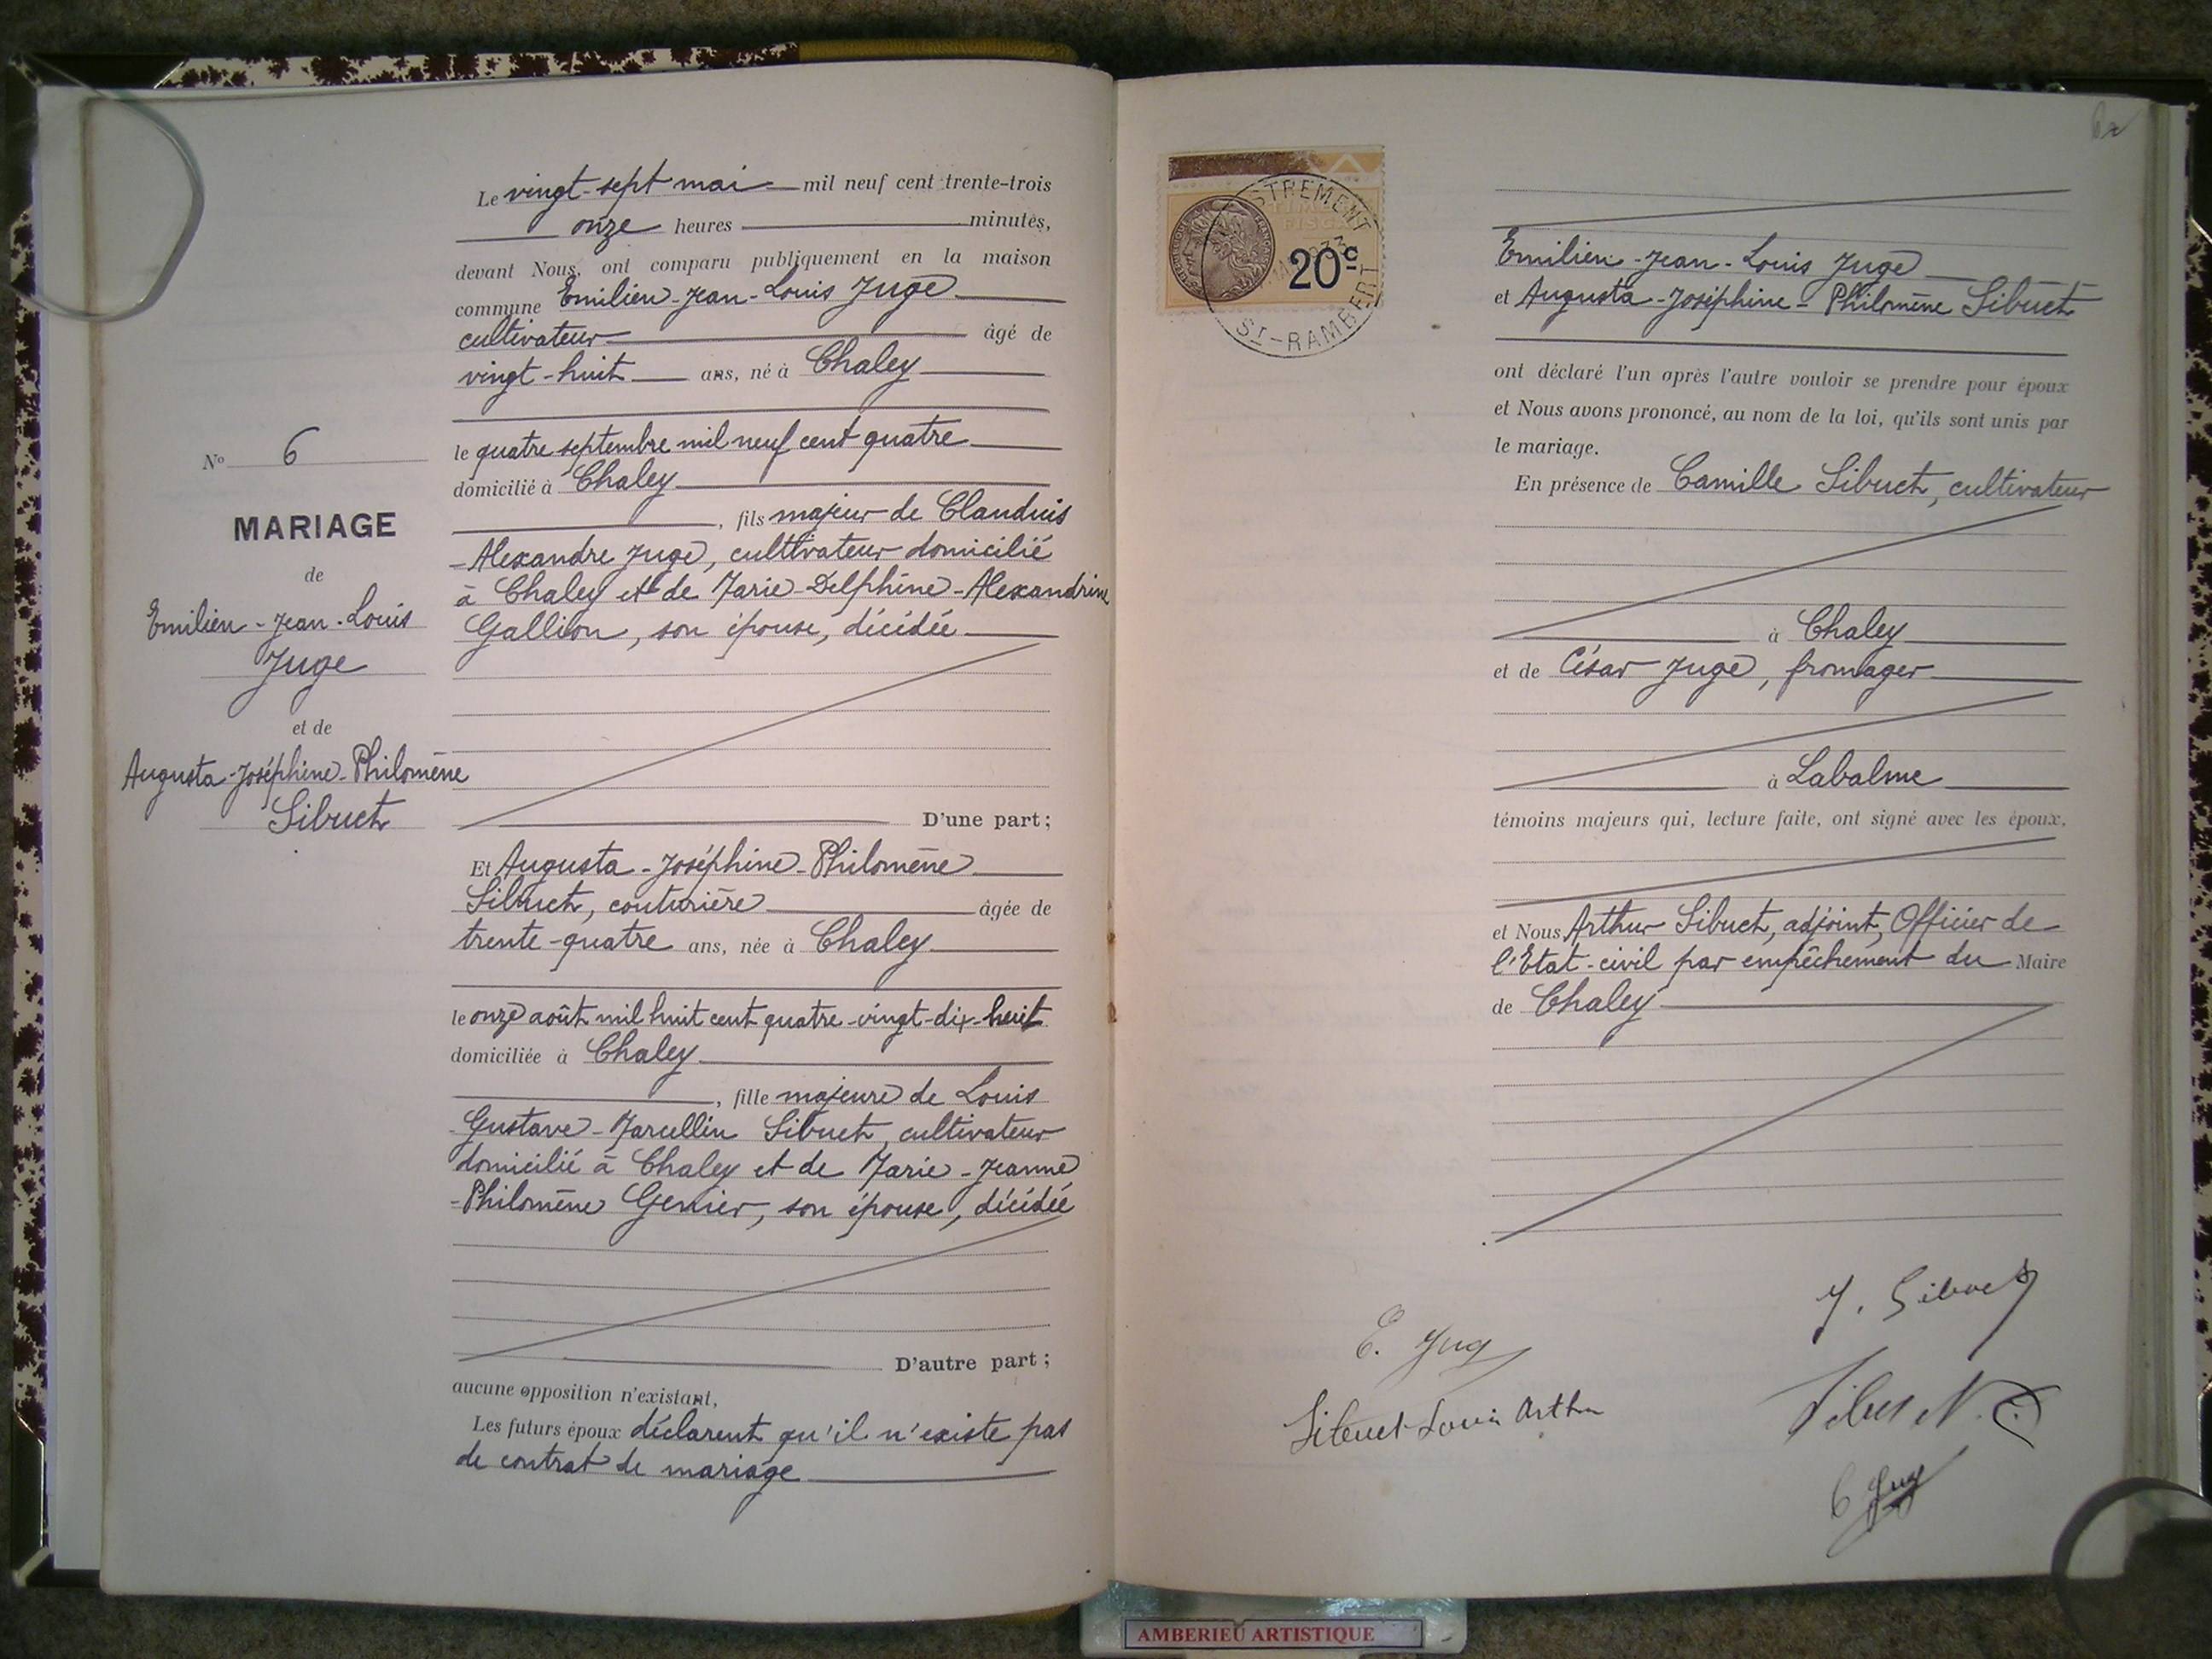 Le vingt-sept mai mil neuf cent trente-trois
onze heures minutes,
devant Nous, ont comparu publiquement en la maison
commune Emilien-Jean-Louis Juge
cultivateur âgé de
vingt-huit ans, né à Chaley
le quatre septembre mil neuf cent quatre
domicilié à Chaley
, fils majeur de Claudius
-Alexandre Juge, cultivateur domicilié
à Chaley et de Marie-Delphine-Alexandrine
Gallion, son épouse, décédée
D'une part;
Et Augusta-Joséphine-Philomène
Sibuet, couturière âgée de
trente-quatre ans, née à Chaley
le onze août mil huit cent quatre-vingt-dix-huit
domiciliée à Chaley
, fille majeure de Louis
Gustave-Marcellin Sibuet, cultivateur
domicilié à Chaley et de Marie-Jeanne
-Philomène Genier, son épouse, décédée
D'autre part;
aucune opposition n'existant,
Les futurs époux déclarent qu'il n'existe pas
de contrat de mariage
No 6
MARIAGE
de
Emilien-Jean-Louis
Juge
et de
Augusta-Joséphine-Philomène
Sibuet
20c
ST-RAMBERT
Emilien-Jean-Louis Juge
et Augusta-Joséphine-Philomène Sibuet
ont déclaré l'un après l'autre vouloir se prendre pour époux
et Nous avons prononcé, au nom de la loi, qu'ils sont unis par
le mariage.
En présence de Camille Sibuet, cultivateur
à Chaley
et de César Juge, fromager
à Labalme
témoins majeurs qui, lecture faite, ont signé avec les époux,
et Nous Arthur Sibuet, adjoint, Officier de
l'Etat-civil par empêchement du Maire
de Chaley
J. Sibuet
E. Juge
Sibuet Louis Arthur
Sibuet
C Juge
AMBERIEU ARTISTIQUE